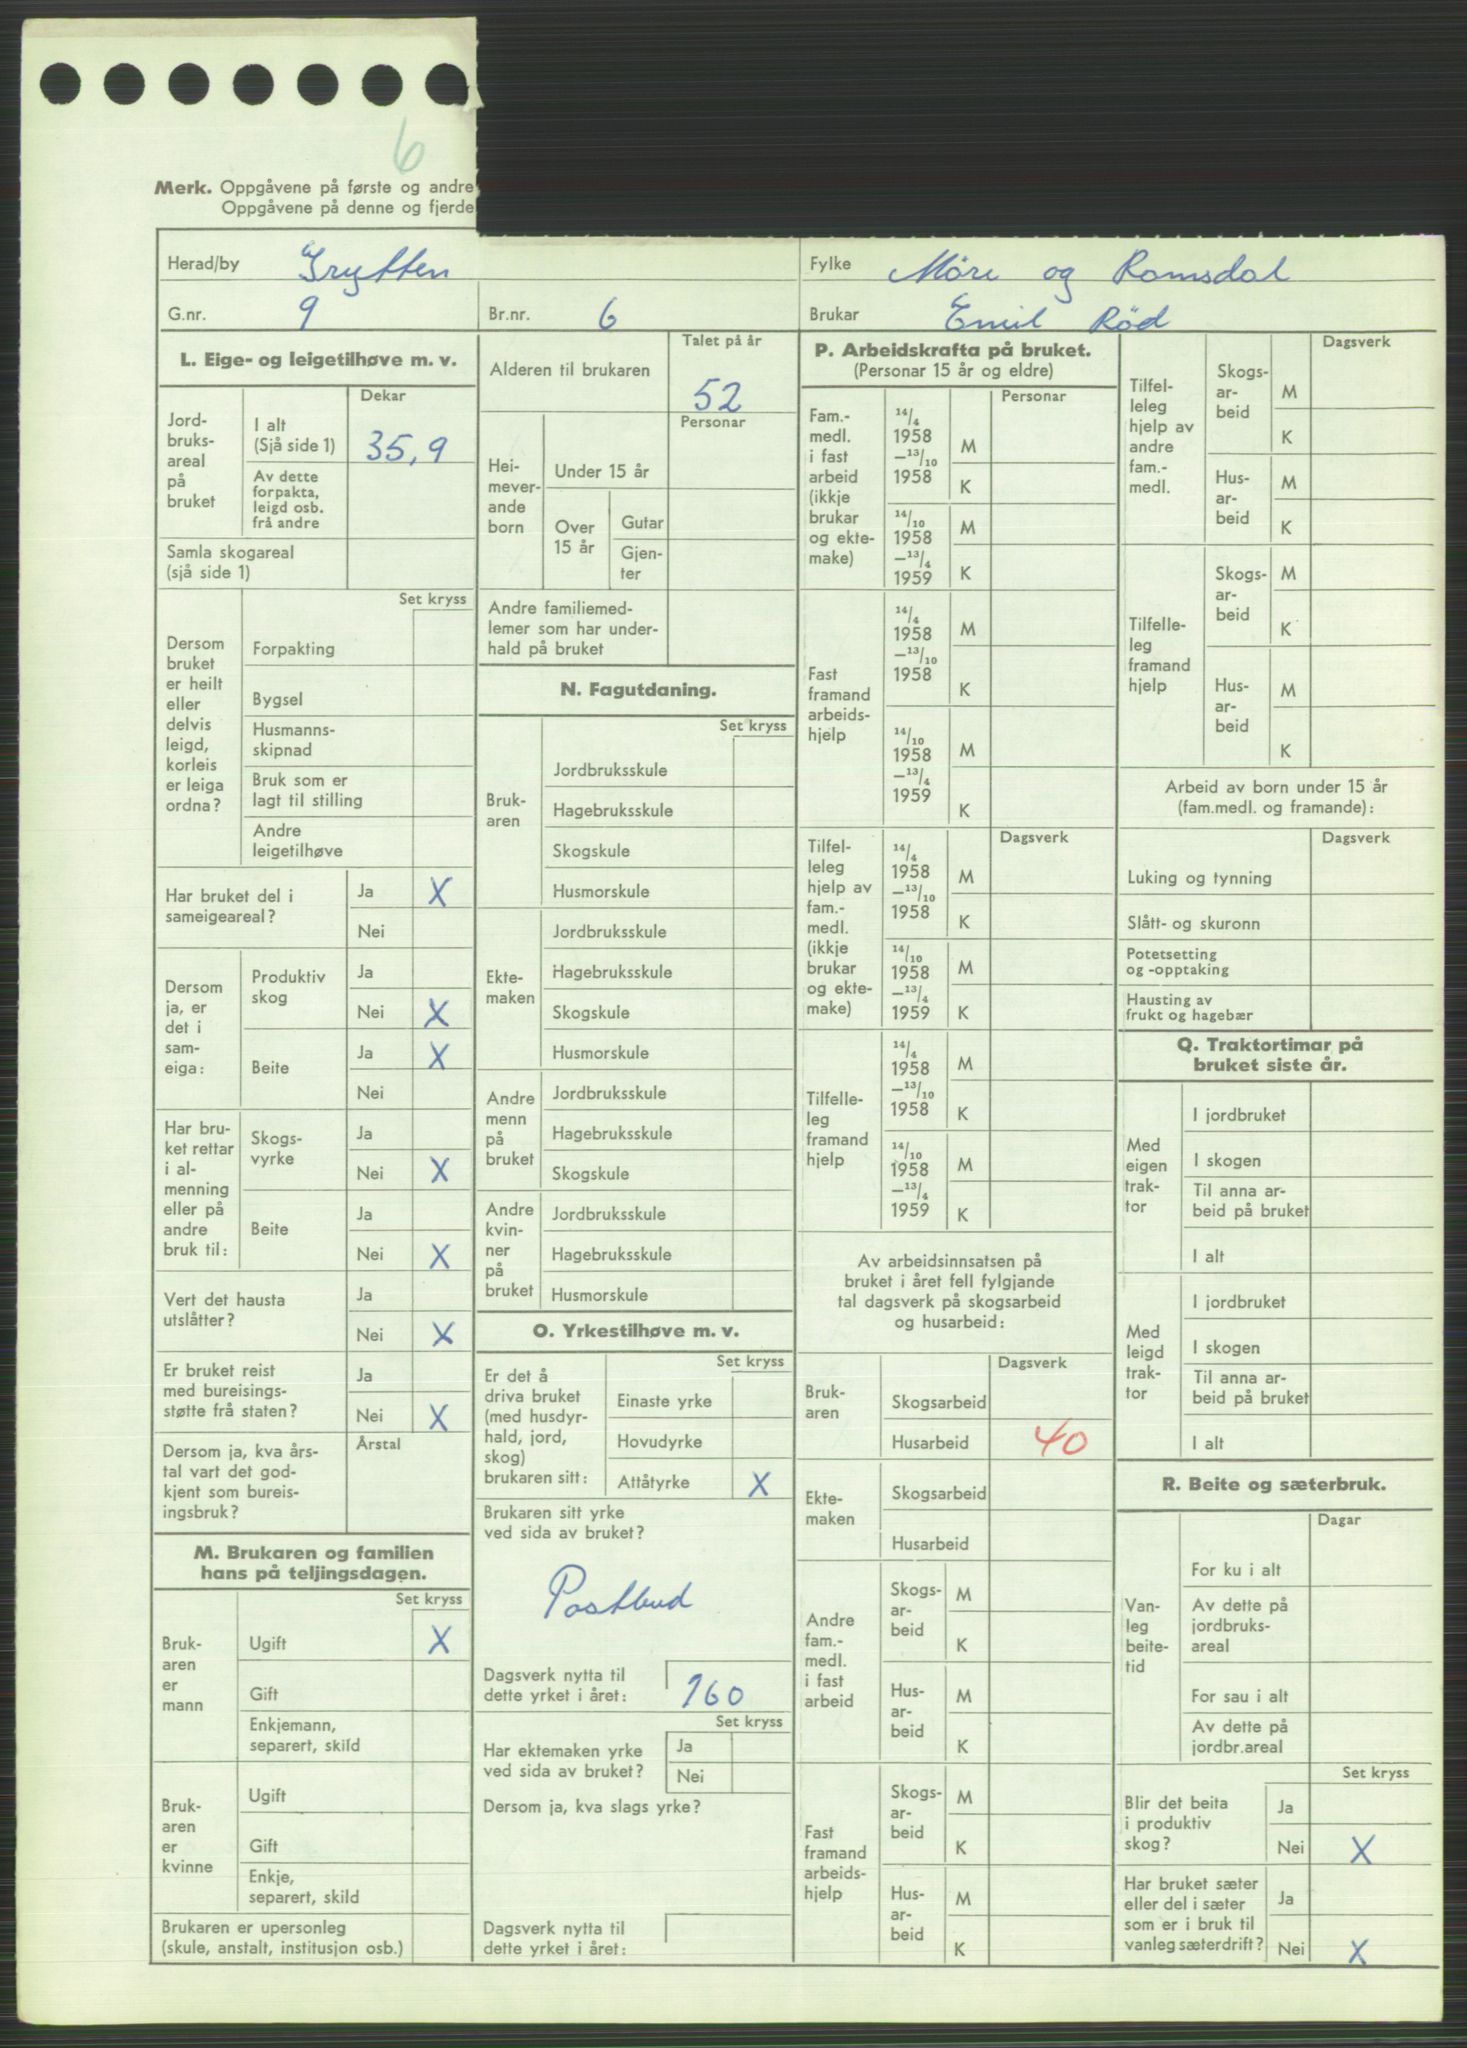 6
Merk. Oppgåvene på første og andre
Oppgåvene på denne og fjerde
Herad/by Grytten
Fylke Möre og Romsdal
G.nr. 9 Br.nr. 6
Brukar Emil Rød
L. Eige- og leigetilhøve m. v.
Dekar
Jord-
bruks-
areal
på
bruket
I alt
(Sjå side 1) 35,9
Av dette
forpakta,
leigd osb.
frå andre
Samla skogareal
(sjå side 1)
Set kryss
Dersom
bruket
er heilt
eller
delvis
leigd,
korleis
er leiga
ordna?
Forpakting
Bygsel
Husmanns-
skipnad
Bruk som er
lagt til stilling
Andre
leigetilhøve
Har bruket del i
sameigeareal?
Ja X
Nei
Dersom
ja, er
det i
sam-
eiga:
Produktiv
skog
Ja
Nei X
Beite
Ja X
Nei
Har bru-
ket rettar
i al-
menning
eller på
andre
bruk til:
Skogs-
vyrke
Ja
Nei X
Beite
Ja
Nei X
Vert det hausta
utslåtter?
Ja
Nei X
Er bruket reist
med bureisings-
støtte frå staten?
Ja
Nei X
Dersom ja, kva års-
tal vart det god-
kjent som bureis-
ingsbruk?
Årstal
M. Brukaren og familien
hans på teljingsdagen.
Set kryss
Bruk-
aren
er
mann
Ugift X
Gift
Enkjemann,
separert, skild
Bruk-
aren
er
kvinne
Ugift
Gift
Enkje,
separert, skild
Brukaren er upersonleg
(skule, anstalt, institusjon osb.)
Talet på år
Alderen til brukaren 52
Personar
Hei-
mever-
ande
born
Under 15 år
Over
15 år
Gutar
Gjen-
ter
Andre familiemed-
lemer som har under-
hald på bruket
N. Fagutdaning.
Set kryss
Bruk-
aren
Jordbruksskule
Hagebruksskule
Skogskule
Husmorskule
Ekte-
maken
Jordbruksskule
Hagebruksskule
Skogskule
Husmorskule
Andre
menn
på
bruket
Jordbruksskule
Hagebruksskule
Skogskule
Andre
kvin-
ner
på
bruket
Jordbruksskule
Hagebruksskule
Husmorskule
O. Yrkestilhøve m. v.
Set kryss
Er det å
driva bruket
(med husdyr-
hald, jord,
skog)
brukaren sitt:
Einaste yrke
Hovudyrke
Attåtyrke X
Brukaren sitt yrke
ved sida av bruket?
Postbud
Dagsverk nytta til
dette yrket i året: 160
Set kryss
Har ektemaken yrke
ved sida av bruket?
Ja
Nei
Dersom ja, kva slags yrke?
Dagsverk nytta til
dette yrket i året:
P. Arbeidskrafta på bruket.
(Personar 15 år og eldre)
Personar
Fam.-
medl.
i fast
arbeid
(ikkje
brukar
og ekte-
make)
14/4
1958
—13/10
1958
M
K
14/10
1958
—13/4
1959
M
K
Fast
framand
arbeids-
hjelp
14/4
1958
—13/10
1958
M
K
14/10
1958
—13/4
1959
M
K
Dagsverk
Tilfel-
leleg
hjelp av
fam.-
medl.
(ikkje
brukar
og ekte-
make)
14/4
1958
—13/10
1958
M
K
14/10
1958
—13/4
1959
M
K
Tilfelle-
leg
framand
hjelp
14/4
1958
—13/10
1958
M
K
14/10
1958
—13/4
1959
M
K
Av arbeidsinnsatsen på
bruket i året fell fylgjande
tal dagsverk på skogsarbeid
og husarbeid:
Dagsverk
Bruk-
aren
Skogsarbeid
Husarbeid 40
Ekte-
maken
Skogsarbeid
Husarbeid
Andre
fam.-
medl.
i fast
arbeid
Skogs-
ar-
beid
M
K
Hus-
ar-
beid
M
K
Fast
framand
arbeids-
hjelp
Skogs-
ar-
beid
M
K
Hus-
ar-
beid
M
K
Dagsverk
Tilfel-
leleg
hjelp av
andre
fam.-
medl.
Skogs-
ar-
beid
M
K
Hus-
ar-
beid
M
K
Tilfelle-
leg
framand
hjelp
Skogs-
ar-
beid
M
K
Hus-
ar-
beid
M
K
Arbeid av born under 15 år
(fam.medl. og framande):
Dagsverk
Luking og tynning
Slått- og skuronn
Potetsetting
og -opptaking
Hausting av
frukt og hagebær
Q. Traktortimar på
bruket siste år.
Med
eigen
trak-
tor
I jordbruket
I skogen
Til anna ar-
beid på bruket
I alt
Med
leigd
trak-
tor
I jordbruket
I skogen
Til anna ar-
beid på bruket
I alt
R. Beite og sæterbruk.
Dagar
Van-
leg
beite-
tid
For ku i alt
Av dette på
jordbruks-
areal
For sau i alt
Av dette på
jordbr.areal
Set kryss
Blir det beita
i produktiv
skog?
Ja
Nei X
Har bruket sæter
eller del i sæter
som er i bruk til
vanleg sæterdrift?
Ja
Nei X